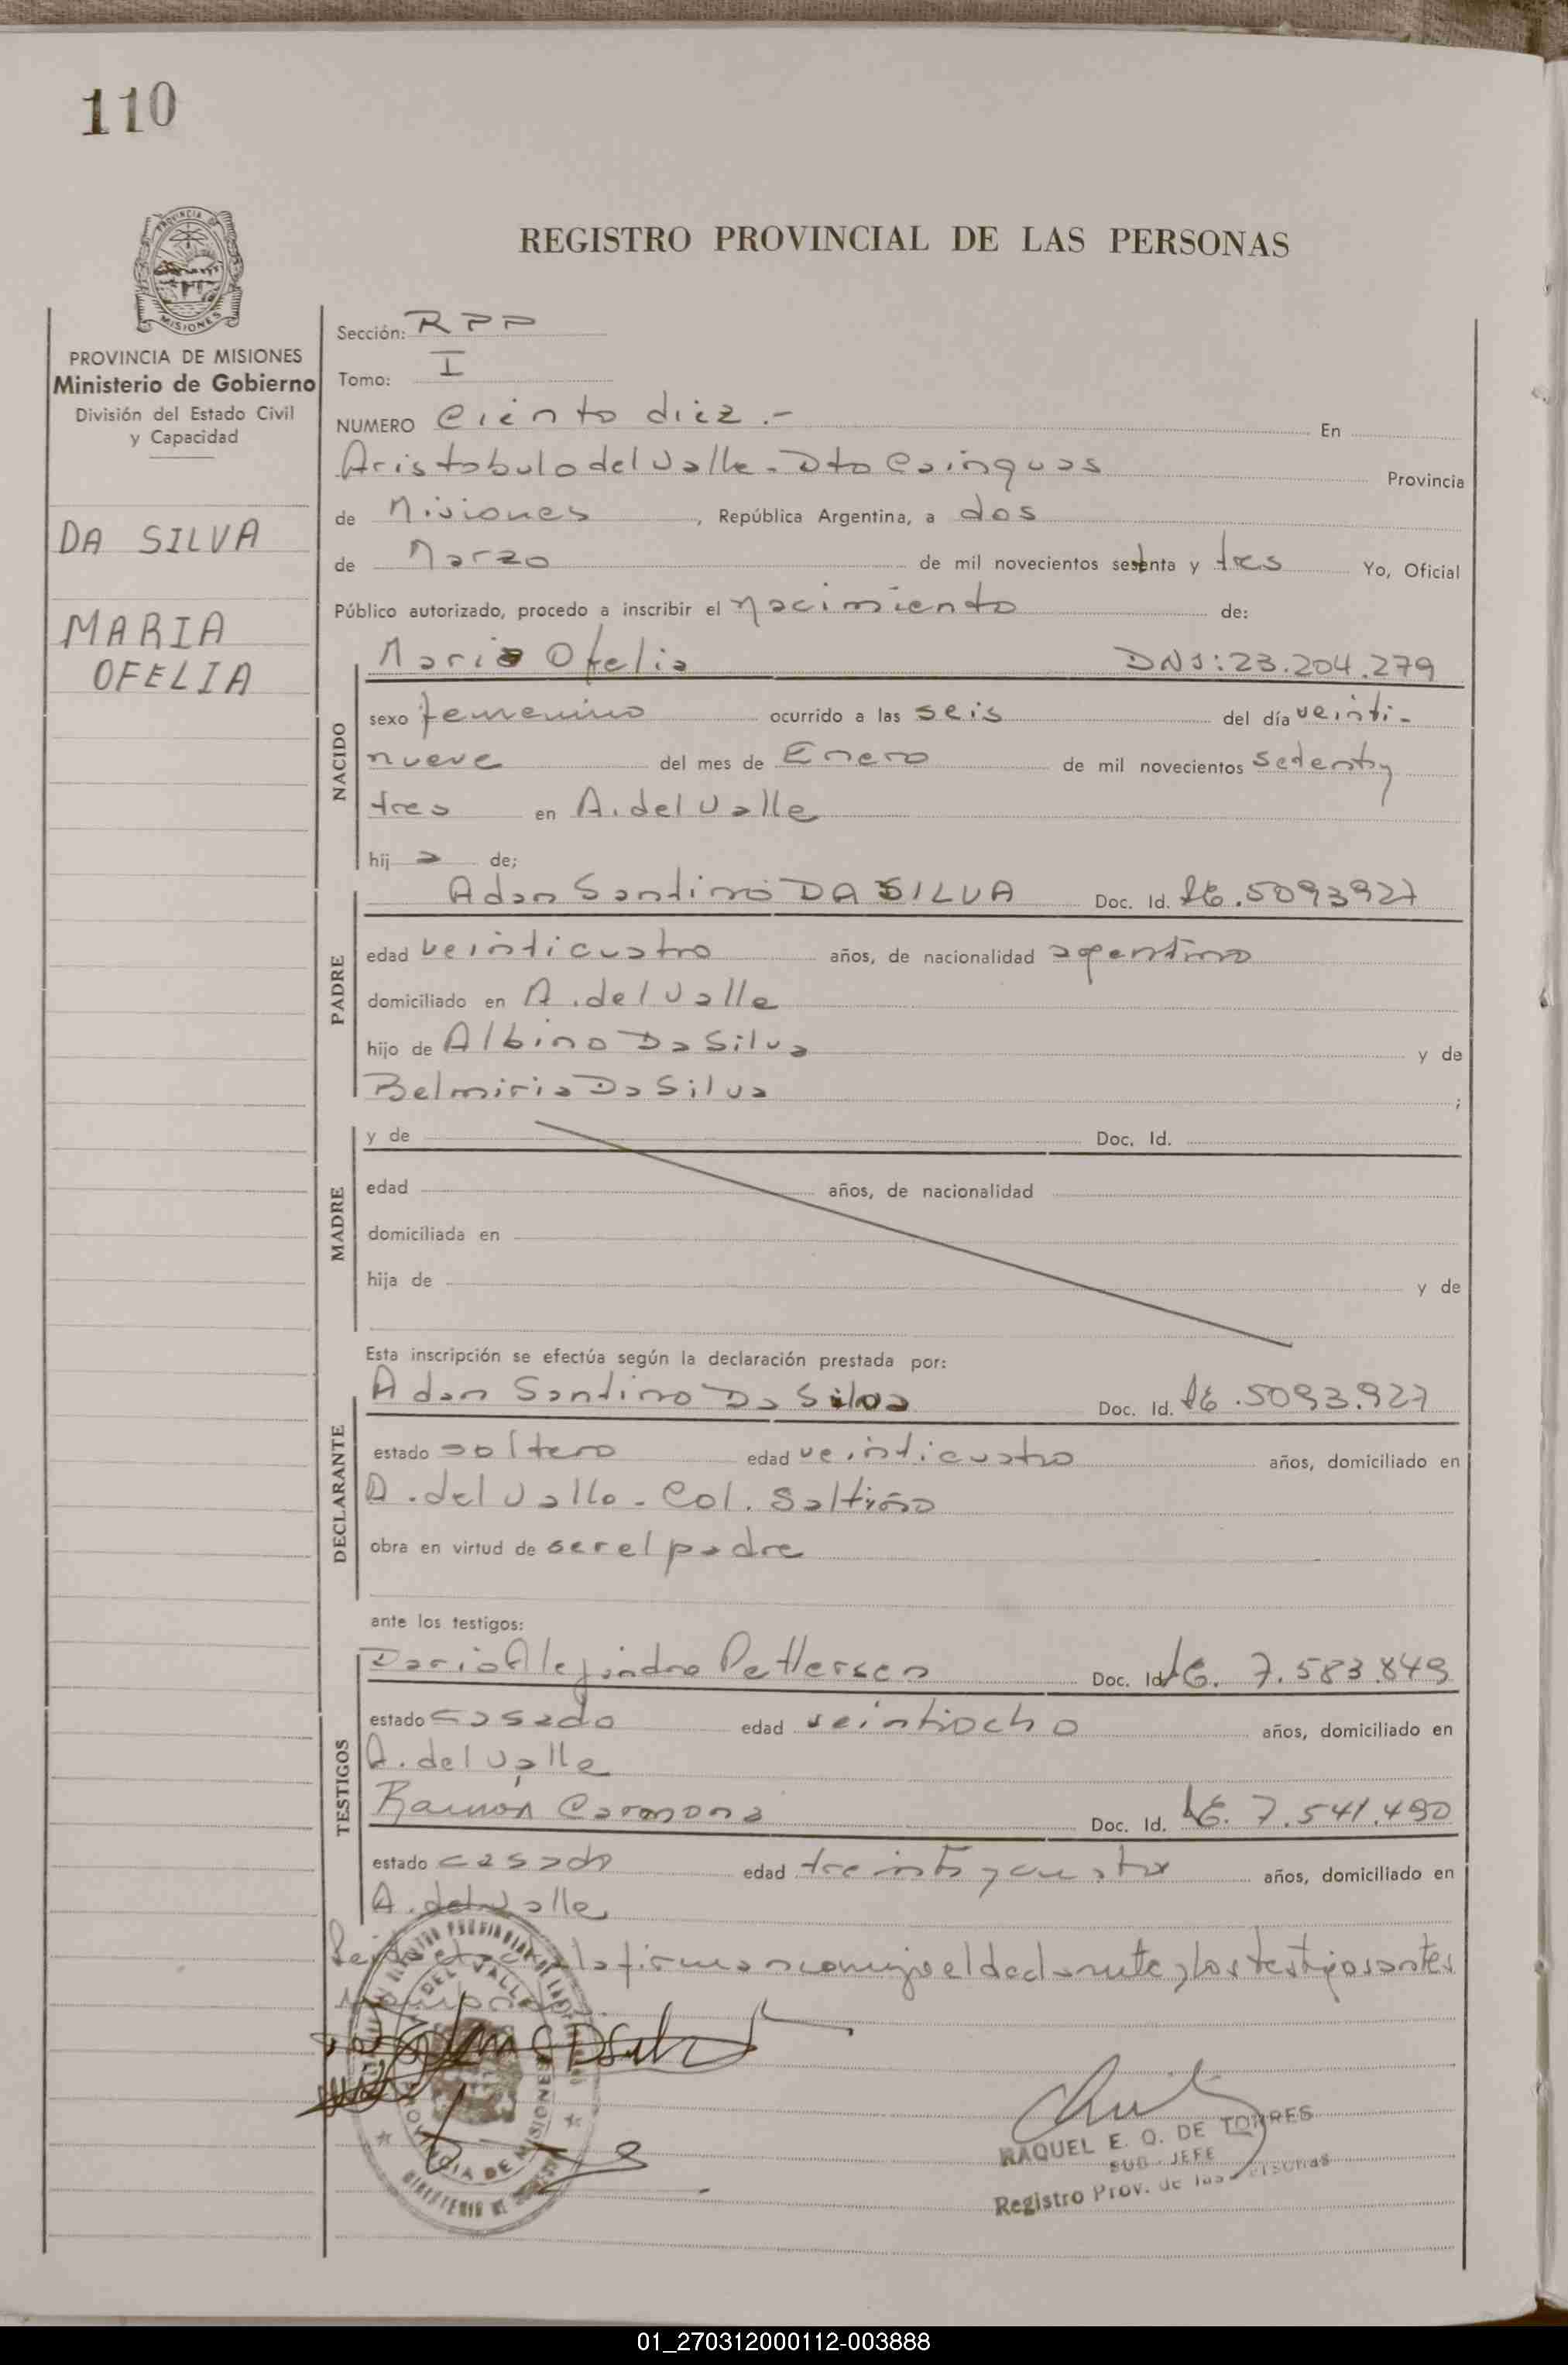 110
REGISTRO PROVINCIAL DE LAS PERSONAS
PROVINCIA DE
MISIONES
PROVINCIA DE MISIONES
Ministerio de Gobierno
División del Estado Civil
y Capacidad
DA SILVA
MARIA
OFELIA
Sección: RPP
Tomo: I
NUMERO Ciento diez.- En
Aristobulo del Valle - Dto Cainguas Provincia
de Misiones, República Argentina, a dos
de Marzo de mil novecientos setenta y tres Yo, Oficial
Público autorizado, procedo a inscribir el nacimiento de:
NACIDO
Maria Ofelia DNI: 23.204.279
sexo femenino ocurrido a las seis del día veinti-
nueve del mes de Enero de mil novecientos setentay
tres en A. del Valle
hij a de;
PADRE
Adan Santino DA SILVA Doc. Id. LE. 5093927
edad veinticuatro años, de nacionalidad agentino
domiciliado en A. del Valle
hijo de Albino Da Silva y de
Belmiria Da Silva ;
MADRE
y de Doc. Id.
edad años, de nacionalidad
domiciliada en
hija de y de
Esta inscripción se efectúa según la declaración prestada por:
DECLARANTE
Adan Santino Da Silva Doc. Id. LE. 5093.927
estado soltero edad veinticuatro años, domiciliado en
A. del Valle - Col. Saltiño
obra en virtud de ser el padre
ante los testigos:
TESTIGOS
Dario Alejandro Pettersen Doc. Id. LE. 7.583.849
estado casado edad veintiocho años, domiciliado en
A. del Valle
Ramon Carmona Doc. Id. LE. 7.541.490
estado casado edad treinta y cuatro años, domiciliado en
A. del Valle
la firman conmigo el declarante y los testigos antes
DEL VALLE
PROVINCIA DE MISIONES
RAQUEL E. O. DE TORRES
SUB - JEFE
Registro Prov. de las Personas
01_270312000112-003888